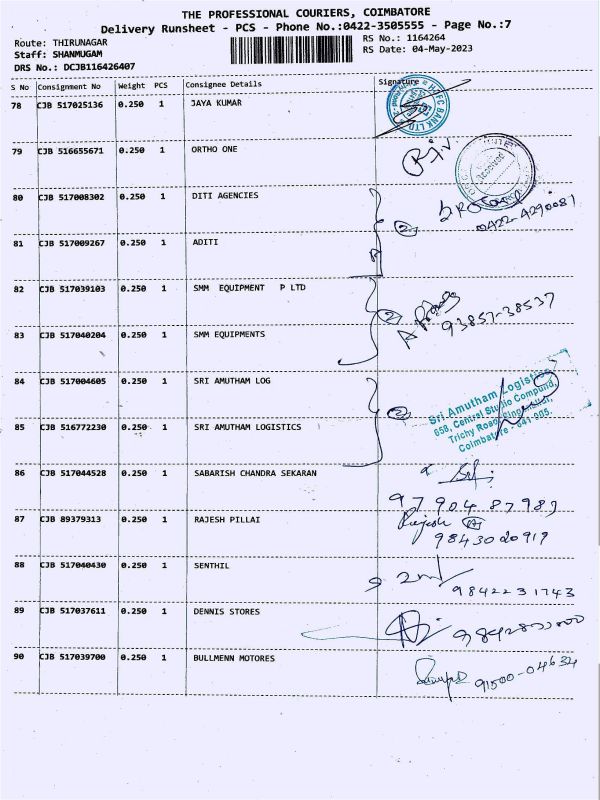 THE PROFESSIONAL COURIERS, COIMBATORE
Delivery Runsheet - PCS - Phone No.:0422-3505555 - Page No.:7
Route: THIRUNAGAR
RS No.: 1164264
Staff: SHANMUGAM
RS Date: 04-May-2023
DRS No.: DCJB116426407
S No Consignment No Weight PCS Consignee Details Signature
78 CJB 517025136 0.250 1 JAYA KUMAR
79 CJB 516655671 0.250 1 ORTHO ONE
80 CJB 517008302 0.250 1 DITI AGENCIES
2
0422-4290081
81 CJB 517009267 0.250 1 ADITI
82 CJB 517039103 0.250 1 SMM EQUIPMENT P LTD
2
93857-38537
83 CJB 517040204 0.250 1 SMM EQUIPMENTS
84 CJB 517004605 0.250 1 SRI AMUTHAM LOG
2
Sri Amutham Logistics
658, Central Studio Compund,
Trichy Road, Singanallur,
Coimbatore - 641 005.
85 CJB 516772230 0.250 1 SRI AMUTHAM LOGISTICS
86 CJB 517044528 0.250 1 SABARISH CHANDRA SEKARAN
97904 87983
87 CJB 89379313 0.250 1 RAJESH PILLAI
Rajesh
9843020919
88 CJB 517040430 0.250 1 SENTHIL
9842231743
89 CJB 517037611 0.250 1 DENNIS STORES
90 CJB 517039700 0.250 1 BULLMENN MOTORES
91500-04634